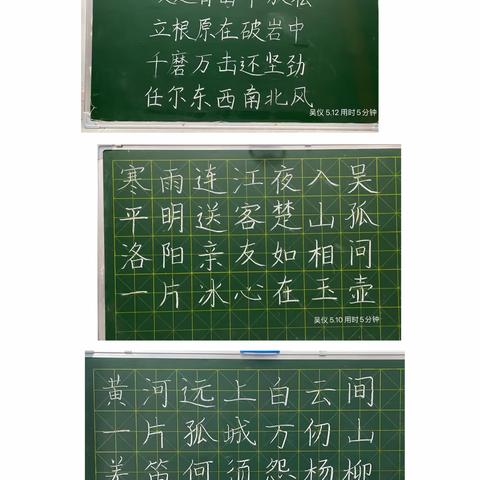 立根原在破岩中
千磨万击还坚劲
任尔东西南北风
吴仪 5.12 用时5分钟
寒雨连江夜入吴
平明送客楚山孤
洛阳亲友如相问
一片冰心在玉壶
吴仪 5.10 用时5分钟
黄河远上白云间
一片孤城万仞山
羌笛何须怨杨柳